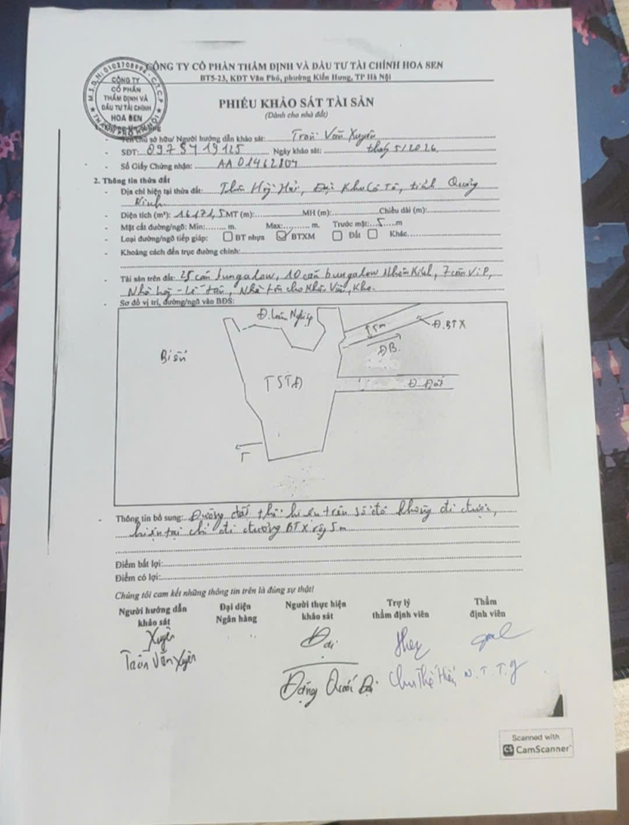 CÔNG TY CỔ PHẦN THẨM ĐỊNH VÀ ĐẦU TƯ TÀI CHÍNH HOA SEN
BT5-23, KĐT Văn Phú, phường Kiến Hưng, TP Hà Nội
CÔNG TY
CỔ PHẦN
THẨM ĐỊNH VÀ
ĐẦU TƯ TÀI CHÍNH
HOA SEN
PHIẾU KHẢO SÁT TÀI SẢN
(Dành cho nhà đất)
chủ sở hữu/ Người hướng dẫn khảo sát: Trần Văn Xuyên
- SĐT: Ngày khảo sát: tháng 5/2026
- Số Giấy Chứng nhận: AA 01462804
2. Thông tin thửa đất
- Địa chỉ hiện tại thửa đất: Thôn Hồng Hải, Đặc Khu Cô Tô, tỉnh Quảng
Ninh
- Diện tích (m²): 16171,5 MT (m): MH (m): Chiều dài (m):
- Mặt cắt đường/ngõ: Min: m. Max: m. Trước mặt: 5 m
- Loại đường/ngõ tiếp giáp: BT nhựa BTXM Đất Khác
- Khoảng cách đến trục đường chính:
- Tài sản trên đất: 25 căn bungalow, 10 căn bungalow Nhôm Kính, 7 căn VIP,
Nhà - Lễ tân, Nhà ở cho Nhân Viên, Kho.
- Sơ đồ vị trí, đường/ngõ vào BĐS:
Đ. Lâm Nghiệp
5m
Đ. BTX
Biển
ĐB
TSTĐ
Đ. Đất
T
- Thông tin bổ sung: Đường đất thể hiện trên sổ đỏ không đi được,
hiện tại chỉ đi đường BTX rộng 5m
- Điểm bất lợi:
- Điểm có lợi:
Chúng tôi cam kết những thông tin trên là đúng sự thật!
Người hướng dẫn khảo sát Đại diện Ngân hàng Người thực hiện khảo sát Trợ lý thẩm định viên Thẩm định viên
Xuyên
Trần Văn Xuyên
Đại
Đặng Quốc Đại
N.T.T.
Scanned with
CS CamScanner